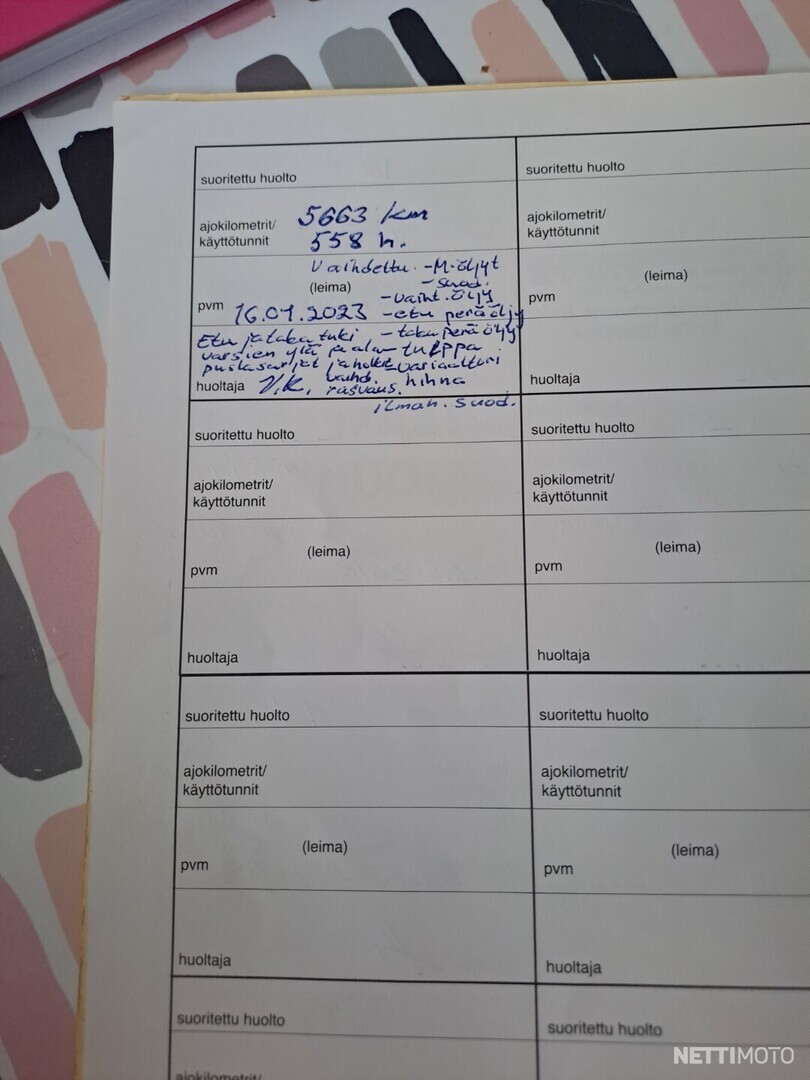 suoritettu huolto
ajokilometrit/ 5663 km
käyttötunnit 558 h.
Vaihdettu -M-öljyt
(leima) - suod.
- vaiht. öljy
pvm 16.01.2023 - etu perä öljy
Etu ja taka tuki - taka perä öljy
varsien ylä ja ala- tulppa
puslasarjat ja holkit variaattori
huoltaja V.K. vaihd. hihna
rasvaus.
ilman. suod.
suoritettu huolto
ajokilometrit/
käyttötunnit
(leima)
pvm
huoltaja
suoritettu huolto
ajokilometrit/
käyttötunnit
(leima)
pvm
huoltaja
suoritettu huolto
ajokilometrit/
käyttötunnit
(leima)
pvm
huoltaja
suoritettu huolto
ajokilometrit/
käyttötunnit
(leima)
pvm
huoltaja
suoritettu huolto
ajokilometrit/
käyttötunnit
(leima)
pvm
huoltaja
suoritettu huolto
ajokilometrit/
suoritettu huolto
NETTIMOTO